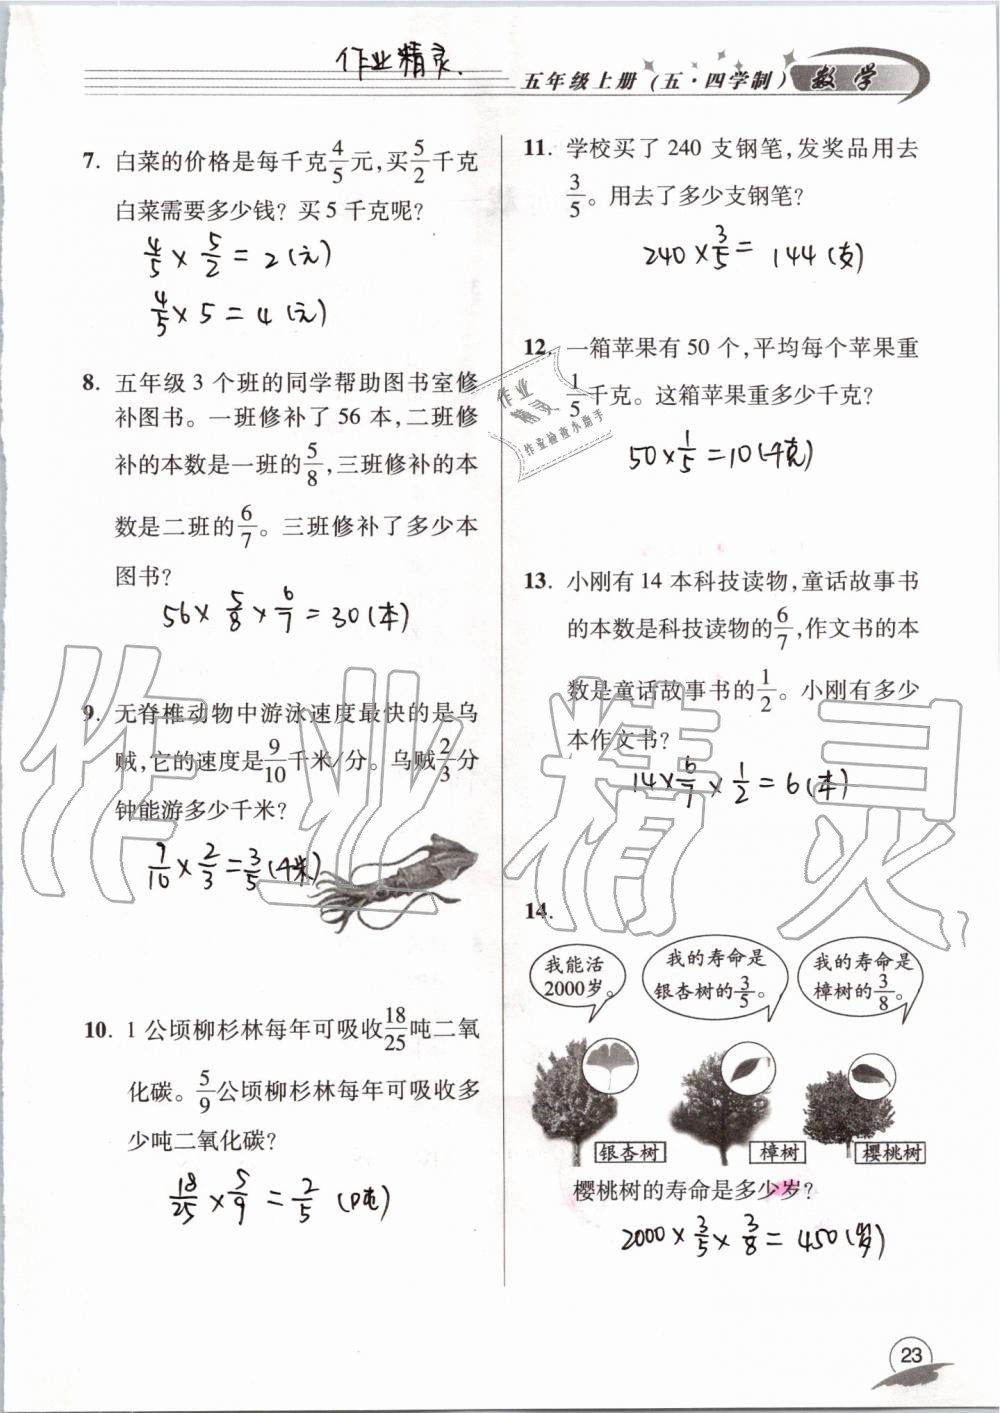 作业精灵.
五年级上册(五·四学制) 数学
7. 白菜的价格是每千克4/5元,买5/2千克
白菜需要多少钱?买5千克呢?
4/5 × 5/2 = 2(元)
4/5 × 5 = 4(元)
8. 五年级3个班的同学帮助图书室修
补图书。一班修补了56本,二班修
补的本数是一班的5/8,三班修补的本
数是二班的6/7。三班修补了多少本
图书?
56 × 5/8 × 6/7 = 30(本)
9. 无脊椎动物中游泳速度最快的是乌
贼,它的速度是9/10千米/分。乌贼2/3分
钟能游多少千米?
9/10 × 2/3 = 3/5(千米)
10. 1公顷柳杉林每年可吸收18/25吨二氧
化碳。5/9公顷柳杉林每年可吸收多
少吨二氧化碳?
18/25 × 5/9 = 2/5(吨)
11. 学校买了240支钢笔,发奖品用去
3/5。用去了多少支钢笔?
240 × 3/5 = 144(支)
12. 一箱苹果有50个,平均每个苹果重
1/5千克。这箱苹果重多少千克?
50 × 1/5 = 10(千克)
作业
精灵
作业检查小助手
13. 小刚有14本科技读物,童话故事书
的本数是科技读物的6/7,作文书的本
数是童话故事书的1/2。小刚有多少
本作文书?
14 × 6/7 × 1/2 = 6(本)
14.
我能活
2000岁。
我的寿命是
银杏树的3/5。
我的寿命是
樟树的3/8。
银杏树
樟树
樱桃树
樱桃树的寿命是多少岁?
2000 × 3/5 × 3/8 = 450(岁)
作业精灵
23